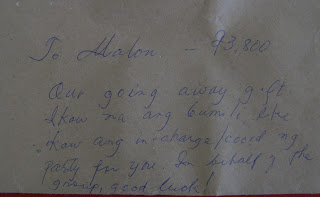 To Malon – ₱3,800
Our going away gift.
Ikaw na ang bumili like
ikaw ang in-charge/coord ng
party for you. In behalf of the
group, good luck!